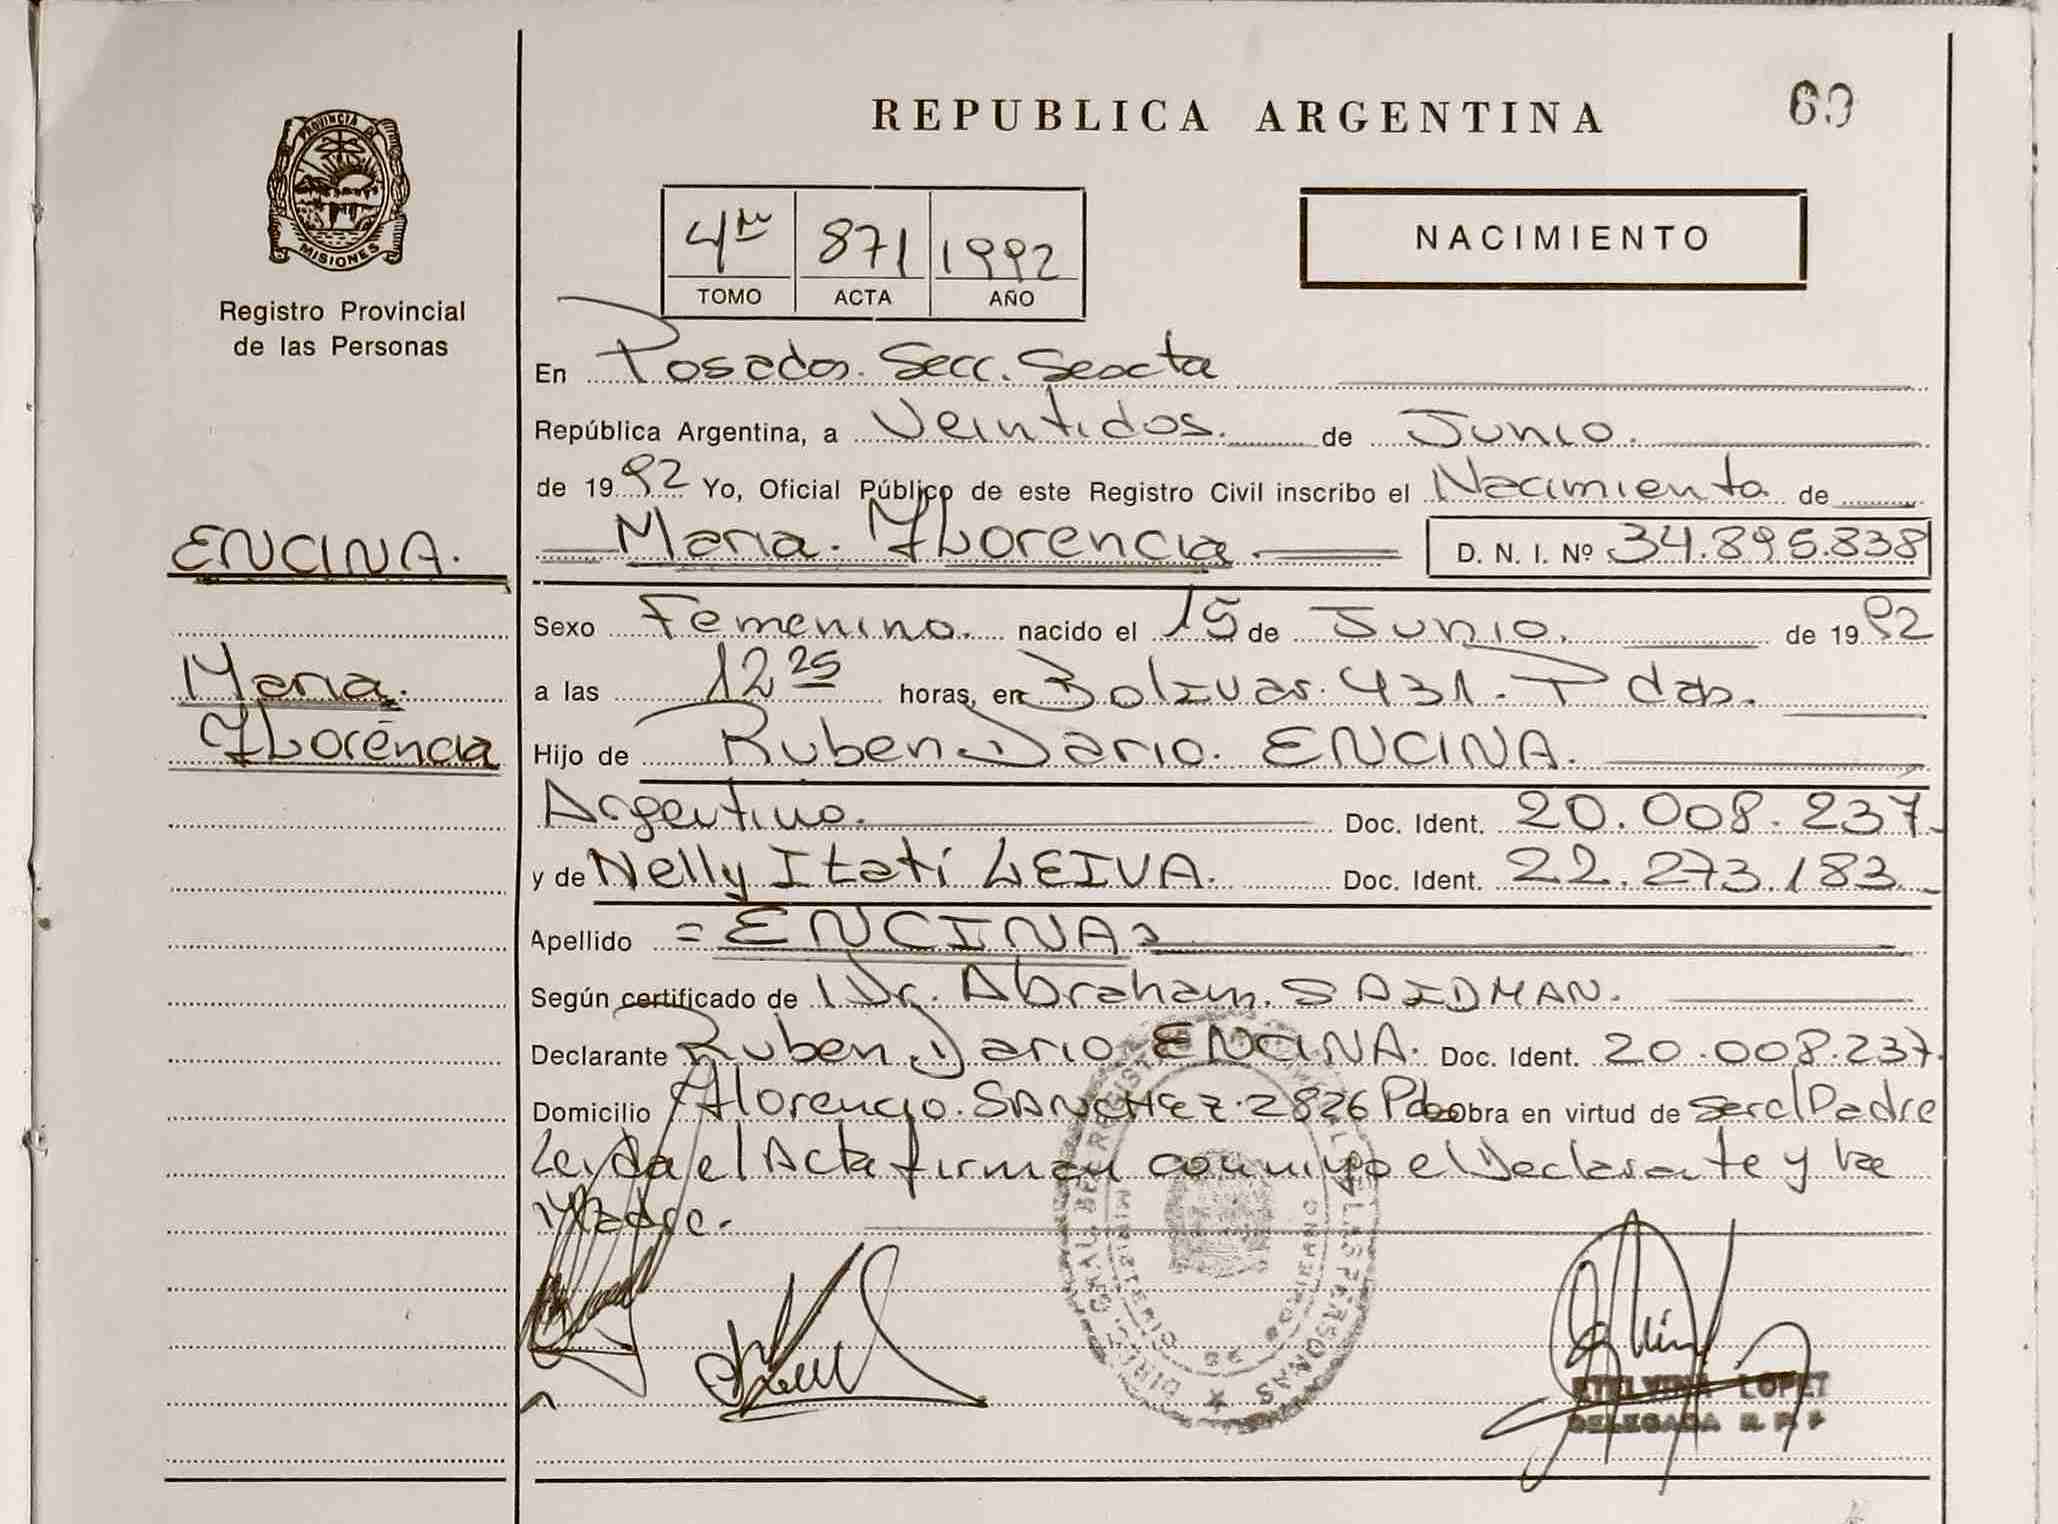 REPUBLICA ARGENTINA
60
PROVINCIA DE
MISIONES
Registro Provincial
de las Personas
4to 871 1992
TOMO ACTA AÑO
NACIMIENTO
En Posadas. Secc. Sexta
República Argentina, a Veintidos. de Junio.
de 1992 Yo, Oficial Público de este Registro Civil inscribo el Nacimiento de
Maria. Florencia. D. N. I. Nº 34.895.838
ENCINA.
Maria.
Florencia
Sexo Femenino. nacido el 15 de Junio. de 1992
a las 12 25 horas, en Bolivar. 431. Pdas.
Hijo de Ruben Dario. ENCINA.
Argentino. Doc. Ident. 20.008.237.
y de Nelly Itatí LEIVA. Doc. Ident. 22.273.183
Apellido = ENCINA=
Según certificado de Dr. Abraham. SAIDMAN.
Declarante Ruben Dario ENCINA. Doc. Ident. 20.008.237.
Domicilio Florencio. SANCHEZ. 2826 Pdas obra en virtud de ser el Padre
Leida el Acta firman conmigo el Declarante y la
Madre.
MINISTERIO DE GOBIERNO
DE LAS PERSONAS
ETELVINA LOPEZ
DELEGADA R. P. P.